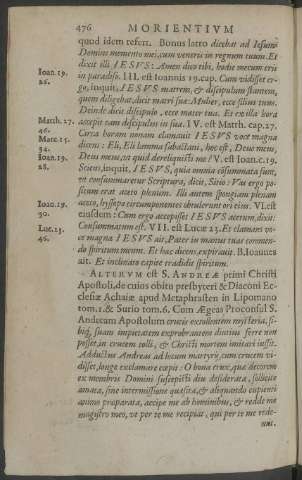 476 MORIENTIVM
quod idem refert. Bonus latro dicebat ad Iesum:
Domine memento mei, cum veneris in regnum tuum. Et
dixit illi IESVS: Amen dico tibi, hodie mecum eris
Ioan. 19. in paradiso. III. est Ioannis 19. cap. Cum vidisset er-
26. go, inquit, IESVS matrem, & discipulum stantem,
quem diligebat, dicit matri suæ: Mulier, ecce filius tuus.
Deinde dicit discipulo, ecce mater tua. Et ex illa hora
Matth. 27. accepit eam discipulus in sua. IV. est Matth. cap. 27.
46. Circa horam nonam clamauit IESVS voce magna
Marc. 15. dicens: Eli, Eli lamma sabacthani, hoc est, Deus meus,
34.
Ioan. 19. Deus meus, vt quid dereliquisti me? V. est Ioan. c. 19.
28. Sciens, inquit, IESVS, quia omnia cōsummata sunt,
vt consummaretur Scriptura, dicit, Sitio: Vas ergo po-
situm erat aceto plenum. Illi autem spongiam plenam
aceto, hyssopo circumponentes obtulerunt ori eius. VI. est
Ioan. 19. eiusdem: Cum ergo accepisset IESVS acetum, dixit:
30. Consummatum est. VII. est Lucæ 23. Et clamans vo-
Luc. 23. ce magna IESVS ait, Pater in manus tuas commen-
46. do spiritum meum. Et hæc dicens, expirauit. B. Ioannes
ait. Et inclinato capite tradidit spiritum.
ALTERVM est S. ANDREÆ primi Christi
Apostoli, de cuius obitu presbyteri & Diaconi Ec-
clesiæ Achaiæ apud Metaphrasten in Lipomano
tom. 1. & Surio tom. 6. Cùm Ægeas Proconsul S.
Andream Apostolum crucis extollentem mysteria, si-
bíq, suam impietatem exprobrantem diutius ferre non
posset, in crucem tolli, & Christi mortem imitari iussit.
Adductus Andreas ad locum martyrij, cum crucem vi-
disset, longe exclamare cœpit: O bona crux, quæ decorem
ex membris Domini suscepisti diu desiderata, sollicitè
amata, sine intermissione quæsita, & aliquando cupienti
animo præparata, accipe me ab hominibus, & redde me
magistro meo, vt per te me recipiat, qui per te me rede-
mit.